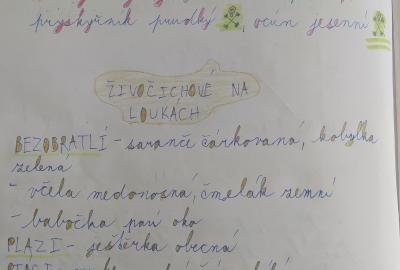 pryskyřník prudký, ocún jesenní
ŽIVOČICHOVÉ NA
LOUKÁCH
BEZOBRATLÍ - saranče čárkovaná, kobylka
zelená
- včela medonosná, čmelák zemní
- babočka paví oko
PLAZI - ještěrka obecná